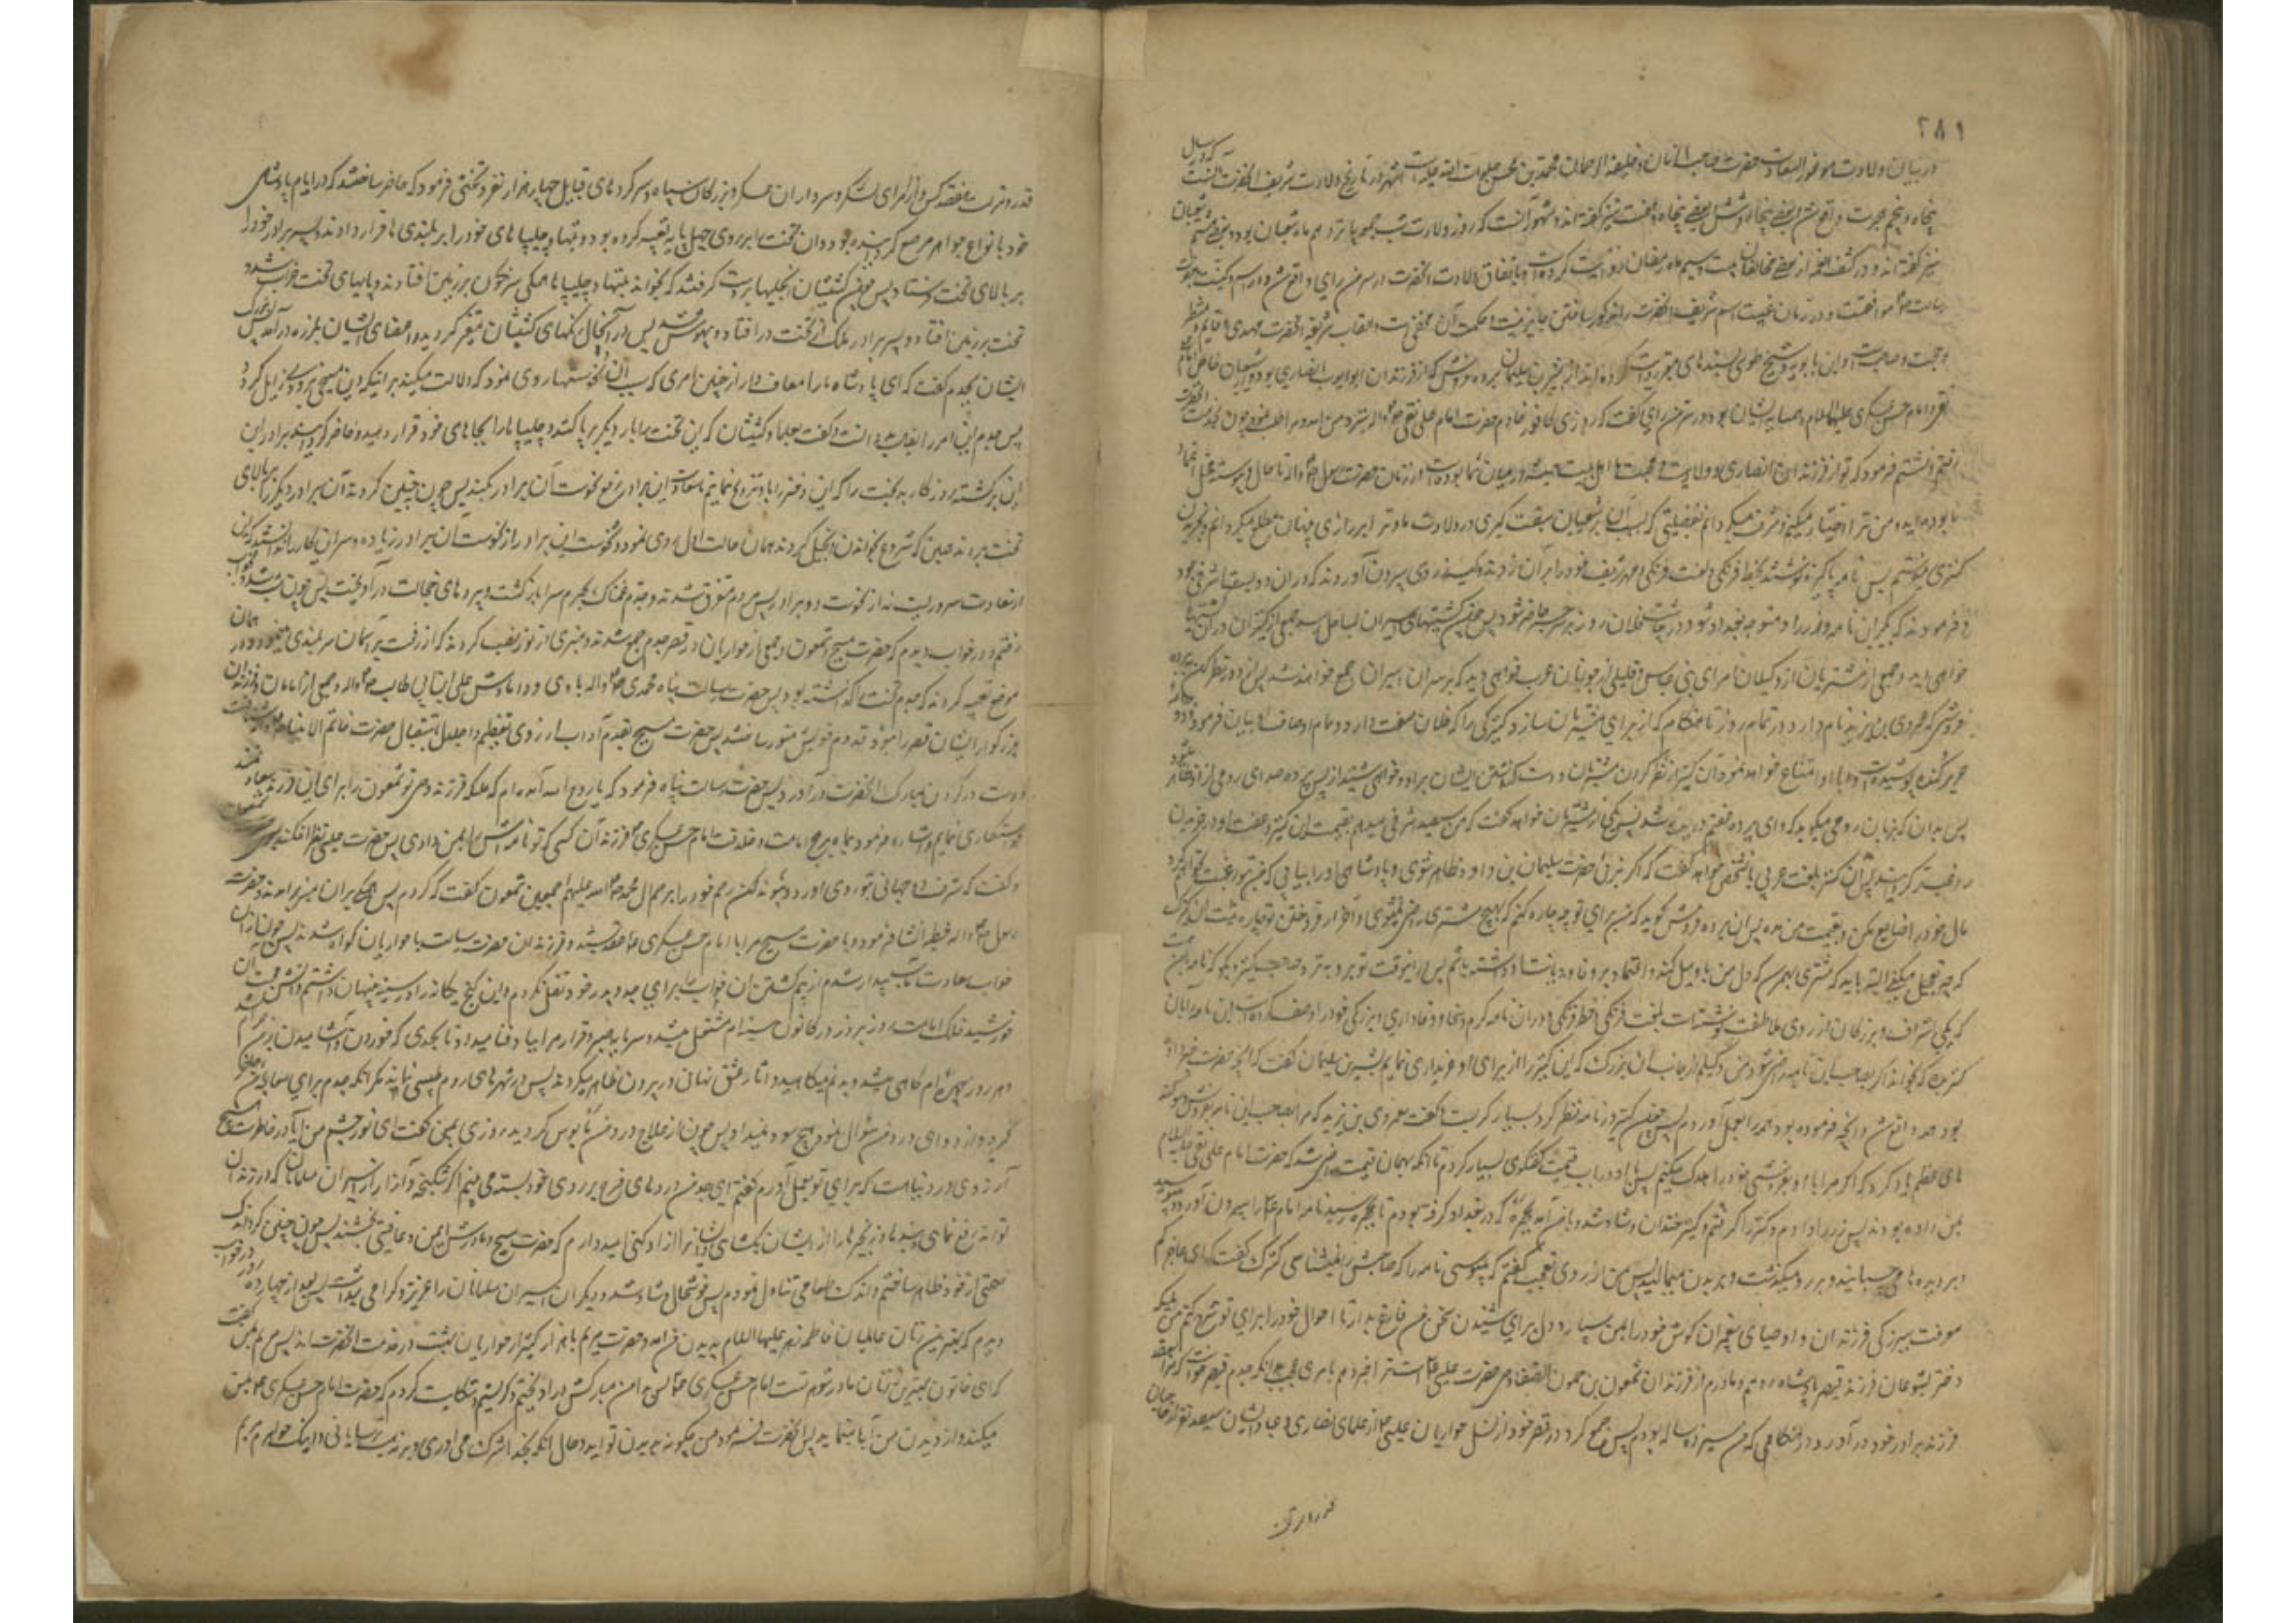 ۲۸۱
در بیان ولادت موفور السعادت حضرت صاحب الزمان و خلیفة الرحمان محمد بن حسن صلوات الله علیه است اشهر در تاریخ ولادت شریف آنحضرت آنست که در سال
پنجاه و پنجم هجرت واقع شد و بعضی پنجاه و شش و بعضی پنجاه و هشت نیز گفته اند و مشهور آنست که روز ولادت شب جمعه پانزدهم ماه شعبان بود و بعضی هشتم شعبان
نیز گفته اند و در کشف الغمه از بعضی مخالفان بیست و سیم ماه رمضان روایت کرده است و باتفاق ولادت آنحضرت در سر من رای واقع شد و در اسم و کنیت با حضرت
رسالت موافقست و در زمان غیبت اسم شریف آنحضرت را مذکور ساختن جایز نیست و حکمت آن مخفی است و القاب شریفه آنحضرت مهدی و قایم و منتظر
و حجت و صاحب است و ابن بابویه و شیخ طوسی بسندهای معتبر روایت کرده اند از بشر بن سلیمان برده فروش که از فرزندان ابو ایوب انصاری بود و از شیعیان خاص امام
نقی و امام حسن عسکری علیهما السلام و همسایه ایشان بود در سر من رای گفت که روزی کافور خادم حضرت امام علی نقی به نزد من آمد و مرا طلب نمود چون بخدمت آنحضرت
رفتم و نشستم فرمود که تو از فرزندان انصاری و ولایت و محبت ما اهل بیت همیشه در میان شما بوده است از زمان حضرت رسول تا حال و پیوسته محل اعتماد
ما بوده اید و من ترا اختیار میکنم و مشرف میکردانم بفضیلتی که بسبب آن بر شیعیان سبقت گیری در ولایت ما و ترا بر رازی پنهان مطلع میکردانم و بخریدن
کنیزی میفرستم پس نامه پاکیزه نوشتند بخط فرنگی و لغت فرنگی و مهر شریف خود را بر آن زدند و کیسه زری بیرون آوردند که در آن دویست و بیست اشرفی بود
و فرمودند که بگیر این نامه و زر را و متوجه بغداد شو و در چاشت فلان روز بر سر جسر حاضر شو پس چون کشتیهای اسیران بساحل رسد جمعی از کنیزان در آن کشتیها
خواهی دید و جمعی از مشتریان از وکیلان امرای بنی عباس و قلیلی از جوانان عرب خواهی دید که بر سر آن اسیران جمع خواهند شد پس از دور نظر کن به برده
فروشی که عمرو بن یزید نام دارد در تمام روز تا هنگامی که از برای مشتریان سازد کنیزکی را که فلان صفت دارد و تمام اوصاف او بیان فرمود و جامه
حریر کنده پوشیده است و ابا و امتناع خواهد نمود آن کنیز از نظر کردن مشتریان و دست گذاشتن ایشان براو و خواهی شنید از پس پرده صدای رومی از او ظاهر میشود
پس بدان که بزبان رومی میگوید که وای پرده عفتم دریده شد پس یکی از مشتریان خواهد گفت که من سیصد اشرفی میدهم بقیمت این کنیز و عفت او در خریدن
راغب تر گردانید پس آن کنیز بلغت عربی بآنشخص خواهد گفت که اگر بزی حضرت سلیمان بن داود ظاهر شوی و پادشاهی او را بیابی که من بتو رغبت نخواهم کرد
مال خود را ضایع مکن و بقیمت من مده پس آن برده فروش گوید که من برای تو چه چاره کنم که بهیچ مشتری راضی نمیشوی و آخر از فروختن تو چاره نیست آن کنیزک گوید
که چه تعجیل میکنی البته باید که مشتری بهم رسد که دل من باو میل کند و اعتماد بر وفا و دیانت او داشته باشم پس در اینوقت تو برو به نزد صاحب کنیز و بگو که نامه با من است
که یکی از اشراف و بزرگان از روی ملاطفت نوشته است بلغت فرنگی و خط فرنگی و در آن نامه کرم و سخاوت و وفاداری و بزرگی خود را وصف کرده است این نامه را بآن
کنیز بده که بخواند اگر بصاحب این نامه راضی شود من وکیلم از جانب آن بزرگ که این کنیز را از برای او خریداری نمایم بشر بن سلیمان گفت که آنچه حضرت خبر داده
بود همه واقع شد و آنچه فرموده بود همه را بعمل آوردم پس چون کنیز در نامه نظر کرد بسیار گریست و گفت بعمرو بن یزید که مرا بصاحب این نامه بفروش و سوگند
های عظیم یاد کرد که اگر مرا باو نفروشی خود را هلاک میکنم پس با او در باب قیمت گفتگوی بسیار کردم تا آنکه بهمان قیمت راضی شد که حضرت امام علی نقی علیه السلام
بمن داده بودند پس زر را دادم و کنیز را گرفتم و کنیز خندان و شاد شد و با من آمد بحجره که در بغداد گرفته بودم تا بحجره رسید نامه امام را بیرون آورد و میبوسید
و بر دیده ها میچسبانید و بر رو میگذشت و بر بدن میمالید پس من از روی تعجب گفتم که میبوسی نامه را که صاحبش را نمیشناسی کنیزک گفت که ای عاجز کم
معرفت ببزرگی فرزندان و اوصیای پیغمبران گوش خود را بمن بسپار و دل برای شنیدن سخن من فارغ بدار تا احوال خود را برای تو شرح کنم من ملیکه
دختر یشوعای فرزند قیصر پادشاه رومم و مادرم از فرزندان شمعون بن حمون الصفا وصی حضرت عیسی است ترا خبر دهم بامری عجیب بدانکه جدم قیصر خواست که مرا بعقد
فرزند برادر خود در آورد در هنگامی که من سیزده ساله بودم پس جمع کرد در قصر خود از نسل حواریان عیسی از علمای نصاری و عباد ایشان سیصد نفر از صاحبان
قدر و منزلت هفتصد کس و از امرای لشکر و سرداران عسکر و بزرگان سپاه و سرکردهای قبایل چهار هزار نفر و تختی فرمود که حاضر ساختند که در ایام پادشاهی
خود بانواع جواهر مرصع گردانیده بود و آن تخت را بر روی چهل پایه تعبیه کرده بود و بتها و چلیپاهای خود را بر بلندی ها قرار دادند و پسر برادر خود را
بر بالای تخت فرستاد پس چون کشیشان انجیلها بر دست گرفتند که بخوانند بتها و چلیپاها همگی سرنگون بر زمین افتادند و پایهای تخت خراب شد و
تخت بر زمین افتاد و پسر برادر ملک از تخت در افتاده بیهوش شد پس در آنحال رنگهای کشیشان متغیر گردید و اعضای ایشان بلرزه در آمد پس بزرگ
ایشان بجدم گفت که ای پادشاه ما را معاف دار از چنین امری که بسبب آن نحوستها روی نمود که دلالت میکند بر اینکه دین مسیحی بزودی زایل گردد
پس جدم این امر را بفال بد دانست و گفت بعلما و کشیشان که این تخت را بار دیگر بر پا کنند و چلیپاها را بجاهای خود قرار دهید و حاضر گردانید برادر این
این برگشته روزگار بدبخت را که این دختر را باو تزویج نمایم تا سعادت این برادر رفع نحوست آن برادر کند پس چون چنین کردند آن برادر دیگر را بر بالای
تخت بردند همین که شروع بخواندن انجیل کردند همان حالت اول روی نمود و نحوست این برادر از نحوست آن برادر زیاده و سر این کار را ندانستند که این
از سعادت سروریست نه از نحوست دو برادر پس مردم متفرق شدند و جدم غمناک بحرم سرا بازگشت و پرده های خجالت در آویخت پس چون شب شد بخواب
رفتم و در خواب دیدم که حضرت مسیح و شمعون و جمعی از حواریان در قصر جدم جمع شدند و منبری از نور نصب کردند که از رفعت بر آسمان سر بلندی مینمود و در همان
موضع تعبیه کردند که جدم تخت را گذاشته بود پس حضرت رسالت پناه محمدی با وصی و دامادش علی ابن ابی طالب و جمعی از امامان و فرزندان
بزرگوار ایشان قصر را بنور قدوم خویش منور ساختند پس حضرت مسیح بقدم آداب از روی تعظیم و اجلال باستقبال حضرت خاتم الانبیا شتافت
و دست در گردن مبارک آنحضرت در آورد پس حضرت رسالت پناه فرمود که یا روح الله آمده ام که ملیکه فرزند وصی تو شمعون را برای این فرزند سعادتمند
خواستگاری نمایم و اشاره فرمود بماه برج امامت و خلافت امام حسن عسکری فرزند آن کسی که تو نامه اش را بمن دادی پس حضرت عیسی نظر افکند بسوی حضرت شمعون
و گفت که شرف دو جهانی بتو روی آورده پیوند کن رحم خود را برحم آل محمد صلوات الله علیهم اجمعین شمعون گفت که کردم پس همگی بر آن منبر بر آمدند و حضرت
رسول خطبه انشا فرمود و با حضرت مسیح مرا با امام حسن عسکری عقد بستند و فرزندان حضرت رسالت با حواریان گواه شدند پس چون از آن
خواب سعادت مآب بیدار شدم از بیم کشتن آن خواب را برای جد و پدر خود نقل نکردم و این گنج یگانه را در سینه پنهان داشتم و آتش محبت آن
خورشید فلک امامت روز بروز در کانون سینه ام مشتعل میشد و سرمایه صبر و قرار مرا بباد فنا میداد تا بحدی که خوردن و آشامیدن بر من حرام شد
و هر روز چهره ام کاهی میشد و بدنم میکاهید و آثار عشق نهانی در بیرون ظاهر میگردید پس در شهرهای روم طبیبی نماند مگر آنکه جدم برای معالجه من حاضر
کرد و از دوای درد من سؤال نمود هیچ سود نمیداد پس چون از علاج درد من مایوس گردید روزی بمن گفت ای نور چشم من آیا در خاطرت هیچ
آرزوی در دنیا هست که برای تو بعمل آورم گفتم ای جد من درهای فرج بر روی خود بسته می بینم اگر شکنجه و آزار از اسیران مسلمانان که در زندان
تواند دفع نمائی و بندها و زنجیرها را از ایشان بگشائی و ایشانرا آزاد کنی امیدوارم که حضرت مسیح و مادرش بمن عافیتی بخشند پس چون چنین کرد اندک
صحتی از خود ظاهر ساختم و اندک طعامی تناول نمودم پس خوشحال و شاد شد و دیگر آن اسیران مسلمانان را عزیز و گرامی میداشت پس بعد از چهارده شب در خواب
دیدم که بهترین زنان عالمیان فاطمه زهرا علیها السلام بدیدن من آمد و حضرت مریم با هزار کنیز از حواریان بهشت در خدمت آنحضرت اند پس مریم بمن گفت
که این خاتون بهترین زنان مادر شوهر تست امام حسن عسکری پس بدامن مبارکش در آویختم و گریستم و شکایت کردم که حضرت امام حسن عسکری بمن جفا
میکند و از دیدن من ابا مینماید پس آنحضرت فرمود من چگونه بدیدن تو آید و حال آنکه بخدا شرک می آوری و بر مذهب ترسایانی و اینک خواهرم مریم